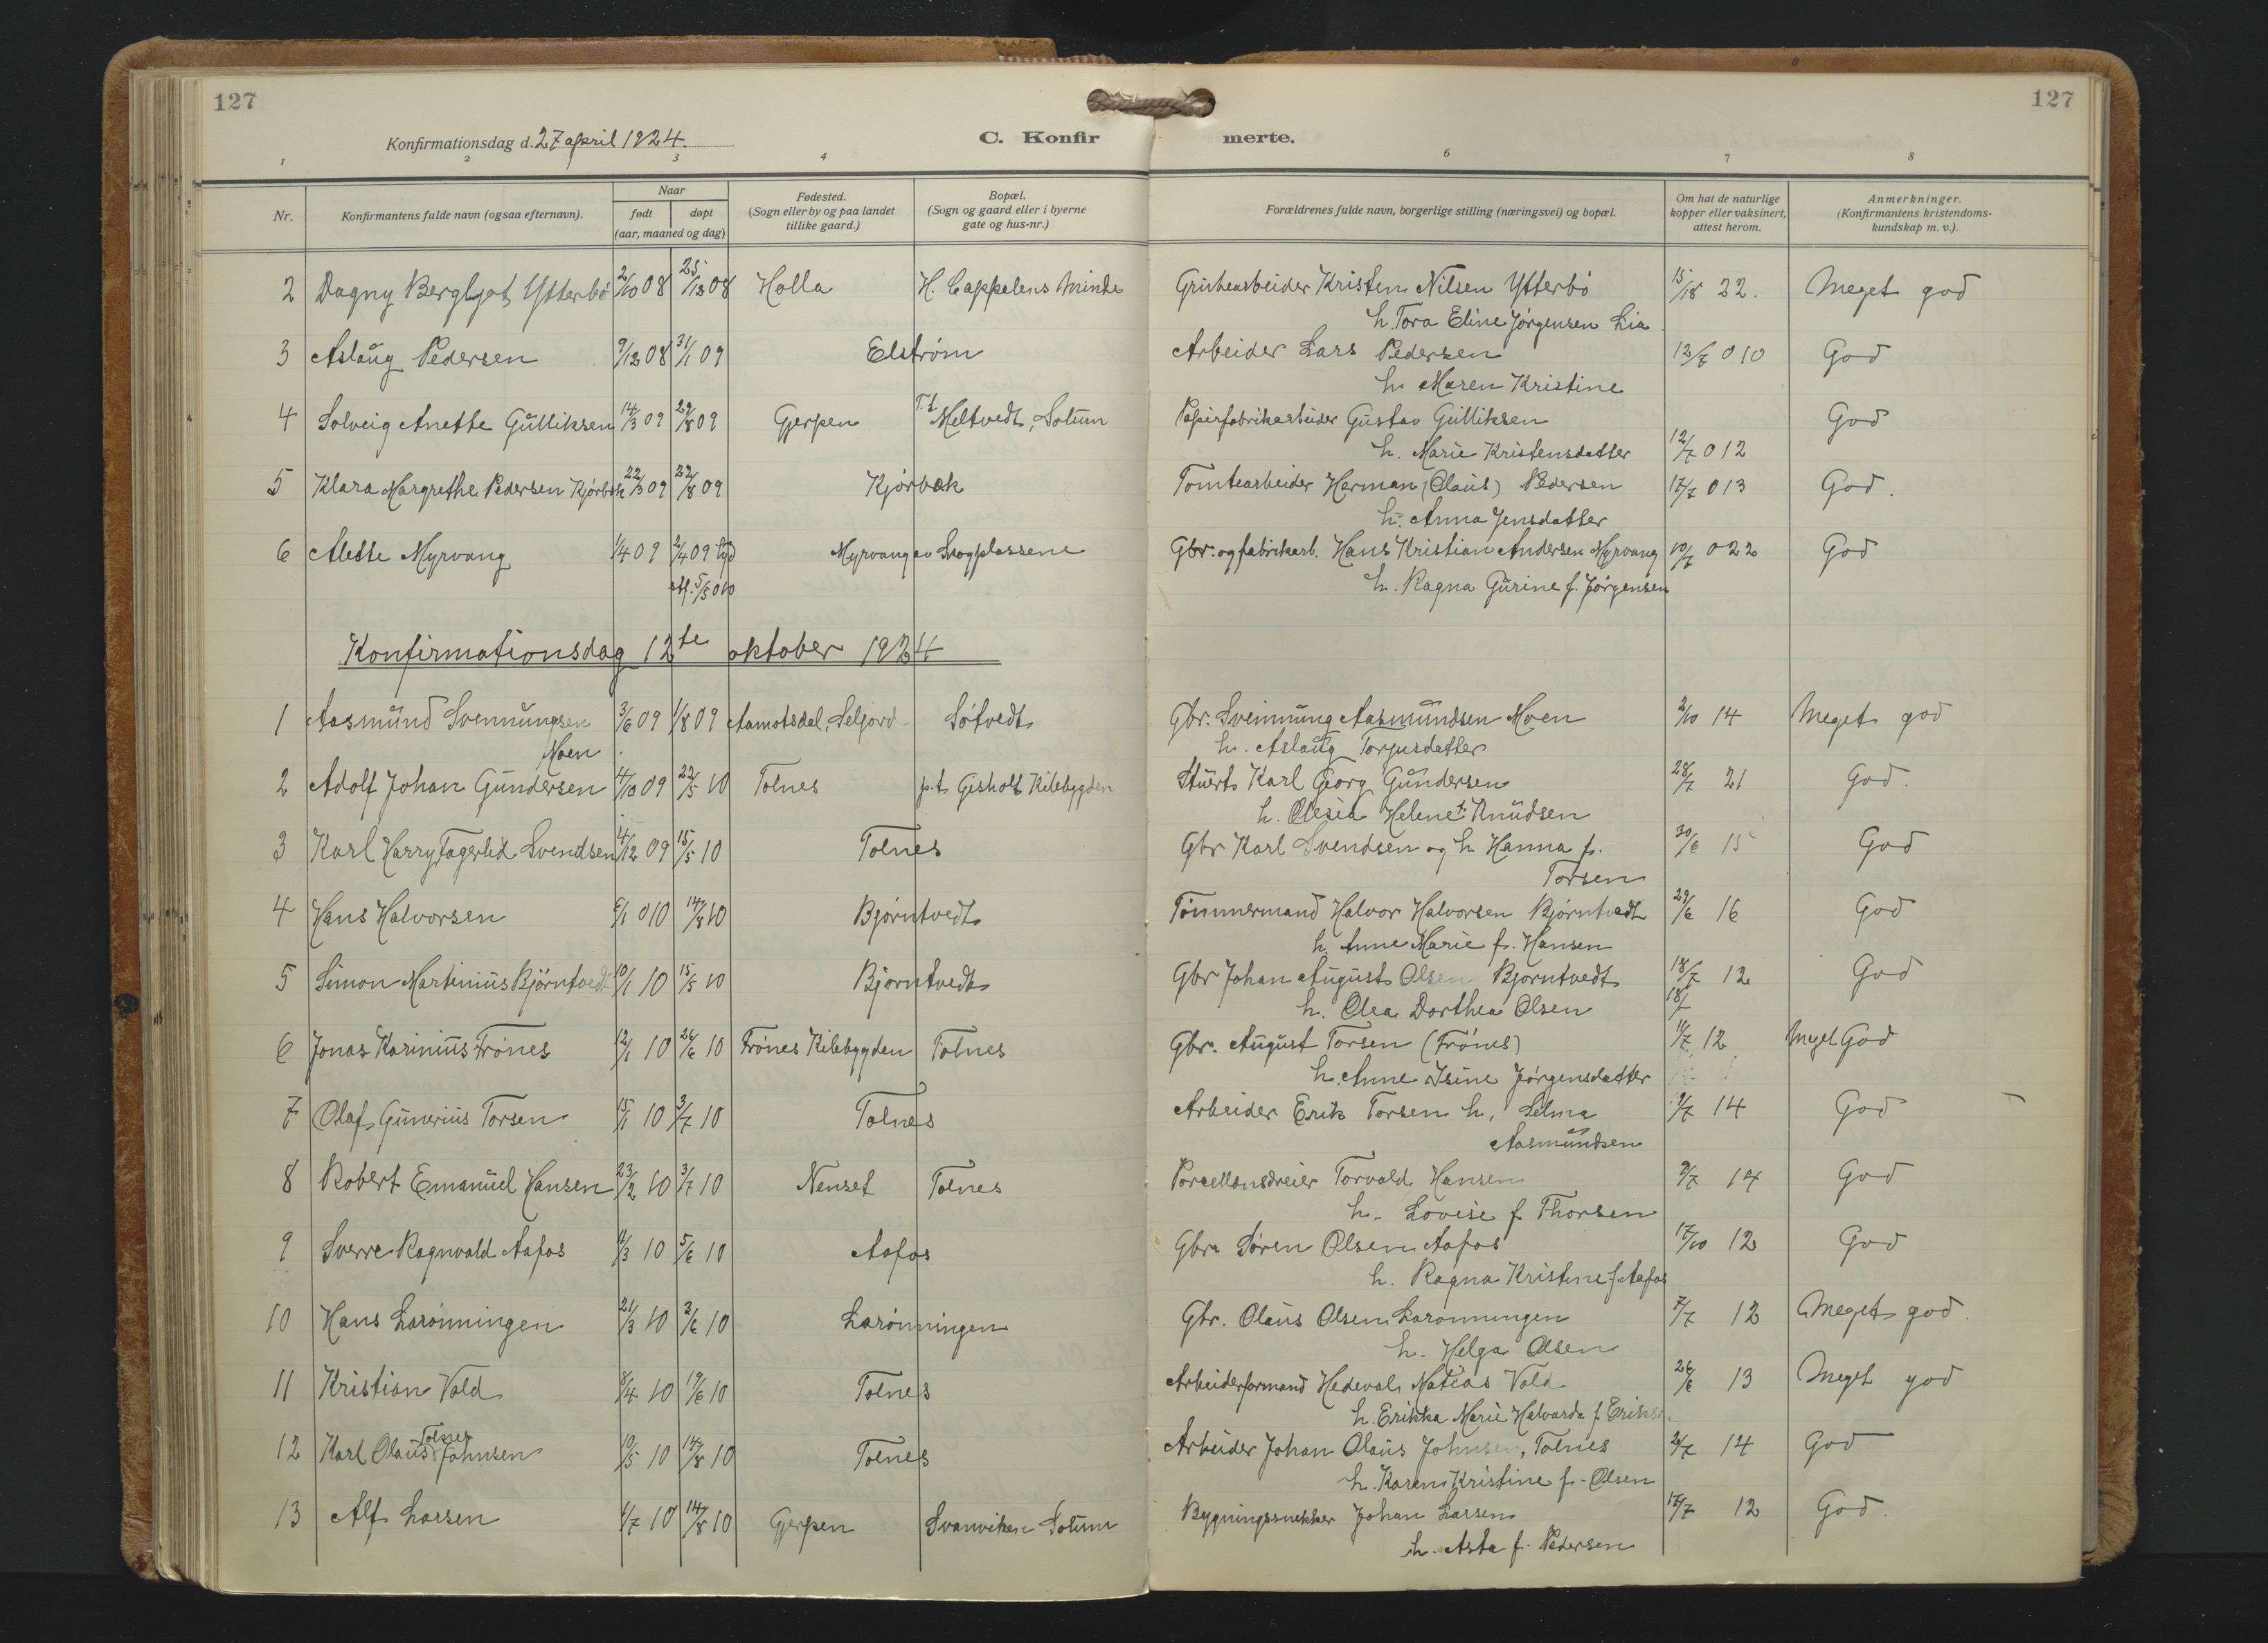 127
127
Konfirmationsdag d. 27 april 1924.
C. Konfir merte.
1 2 3 4 6 7 8
Nr.
Konfirmantens fulde navn (ogsaa efternavn).
Naar
født døpt
(aar, maaned og dag)
Fødested.
(Sogn eller by og paa landet
tillike gaard.)
Bopæl.
(Sogn og gaard eller i byerne
gate og hus-nr.)
Forældrenes fulde navn, borgerlige stilling (næringsvei) og bopæl.
Om hat de naturlige
kopper eller vaksinert,
attest herom.
Anmerkninger.
(Konfirmantens kristendoms-
kundskap m. v.).
2 Dagny Bergljot Ytterbö 2/10 08 25/12 08 Holla H. Cappelens Minde Grubearbeider Kristen Nilsen Ytterbö 22. Meget god
h. Tora Eline Jørgensen Lia
3 Aslaug Pedersen 9/12 08 31/1 09 Elstrøm Arbeider Lars Pedersen 12/7 010 God
h. Maren Kristine
4 Solveig Anette Gulliksen 14/3 09 29/8 09 Gjerpen Meltvedt, Solum Papirfabrikarbeider Gustav Gulliksen God
h. Marie Kristensdatter 12/7 012
5 Klara Margrethe Pedersen Kjørbek 22/3 09 22/8 09 Kjørbæk Tomtearbeider Herman (Olaus) Pedersen 17/7 013 God.
h. Anna Jensdatter
6 Alette Myrvang 1/4 09 2/4 09 Myrvang av Skogplassene Gbr. og fabrikarb. Hans Kristian Andersen Myrvang 10/7 022 God
stf. 5/5 010 h. Ragna Gurine f. Jørgensen
Konfirmationsdag 12te oktober 1924
1 Aasmund Svennungsen 3/6 09 1/8 09 Aamotsdal, Seljord Søtvedt Gbr. Sveinung Aasmundsen Moen 2/10 14 Meget god
Moen h. Aslaug Torjusdatter
2 Adolf Johan Gundersen 4/10 09 22/5 10 Tolnes p.t. Gisholt Kilebygden Stuert Karl Georg Gundersen 28/7 21 God.
h. Olesia Helene f. Knudsen
3 Karl Harry Fagerlid Svendsen 4/12 09 15/5 10 Tolnes Gbr Karl Svendsen og h Hanna f. 30/6 15 God
Torsen
4 Hans Halvorsen 6/1 010 14/8 10 Bjørntvedt Tømmermand Halvor Halvorsen Bjørntvedt 29/6 16 God
h. Anne Marie f. Hansen
5 Simon Martinius Bjørntvedt 10/1 10 15/5 10 Bjørntvedt Gbr Johan August Olsen Bjørntvedt 18/7 12 God
h. Olea Dorthea Olsen 18/
6 Jonas Karinius Trönes 12/1 10 26/6 10 Trönes Kilebygden Tolnes Gbr. August Torsen (Trönes) 11/7 12 Meget God
h. Anne Isine Jørgensdatter
7 Olaf Gunerius Torsen 15/1 10 3/7 10 Tolnes Arbeider Erik Torsen h. Selma 9/7 14 God
Aasmundsen
8 Robert Emanuel Hansen 23/2 10 3/7 10 Nenset Tolnes Porcellansdreier Torvald Hansen 9/7 14 God
h. Lovise f. Thorsen
9 Sverre Ragnvald Aafos 11/3 10 5/6 10 Aafos Gbr. Søren Olsen Aafos 17/10 12 God
h. Ragna Kristine f. Aafos
10 Hans Larønningen 21/3 10 3/6 10 Larønningen Gbr. Olaus Olsen Larønningen 7/7 12 Meget god.
h. Helga Olsen
11 Kristian Vold 8/4 10 19/6 10 Tolnes Arbeiderformand Hedeval Matias Vold 26/6 13 Meget god
h. Erikka Marie Halvarda f. Eriksen
12 Karl Olaus Tolnes Johnsen 10/5 10 14/8 10 Tolnes Arbeider Johan Olaus Johnsen, Tolnes 14 God
h. Karen Kristine f. Olsen
13 Alf Larsen 1/7 10 14/8 10 Gjerpen Svanviken Solum Bygningssnekker Johan Larsen 17/7 12 God.
h. Asta f. Pedersen